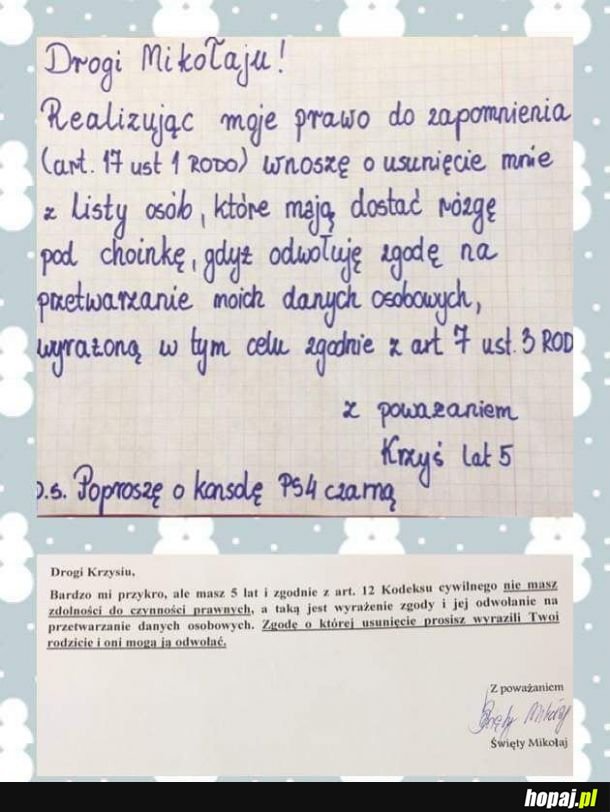 Drogi Mikołaju!
Realizując moje prawo do zapomnienia
(art. 17 ust 1 RODO) wnoszę o usunięcie mnie
z listy osób, które mają dostać rózgę
pod choinkę, gdyż odwołuję zgodę na
przetwarzanie moich danych osobowych,
wyrażoną w tym celu zgodnie z art 7 ust. 3 ROD
z poważaniem
Krzyś lat 5
p.s. Poproszę o konsolę PS4 czarną
Drogi Krzysiu,
Bardzo mi przykro, ale masz 5 lat i zgodnie z art. 12 Kodeksu cywilnego nie masz
zdolności do czynności prawnych, a taką jest wyrażenie zgody i jej odwołanie na
przetwarzanie danych osobowych. Zgodę o której usunięcie prosisz wyrazili Twoi
rodzicie i oni mogą ją odwołać.
Z poważaniem
Święty Mikołaj
Święty Mikołaj
hopaj.pl